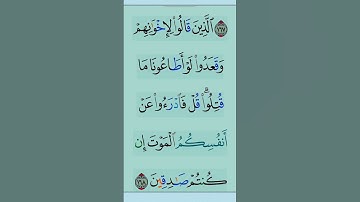 ١٦٧ ٱلَّذِينَ قَالُوا۟ لِإِخْوَٰنِهِمْ
وَقَعَدُوا۟ لَوْ أَطَاعُونَا مَا
قُتِلُوا۟ ۗ قُلْ فَٱدْرَءُوا۟ عَنْ
أَنفُسِكُمُ ٱلْمَوْتَ إِن
كُنتُمْ صَٰدِقِينَ ١٦٨